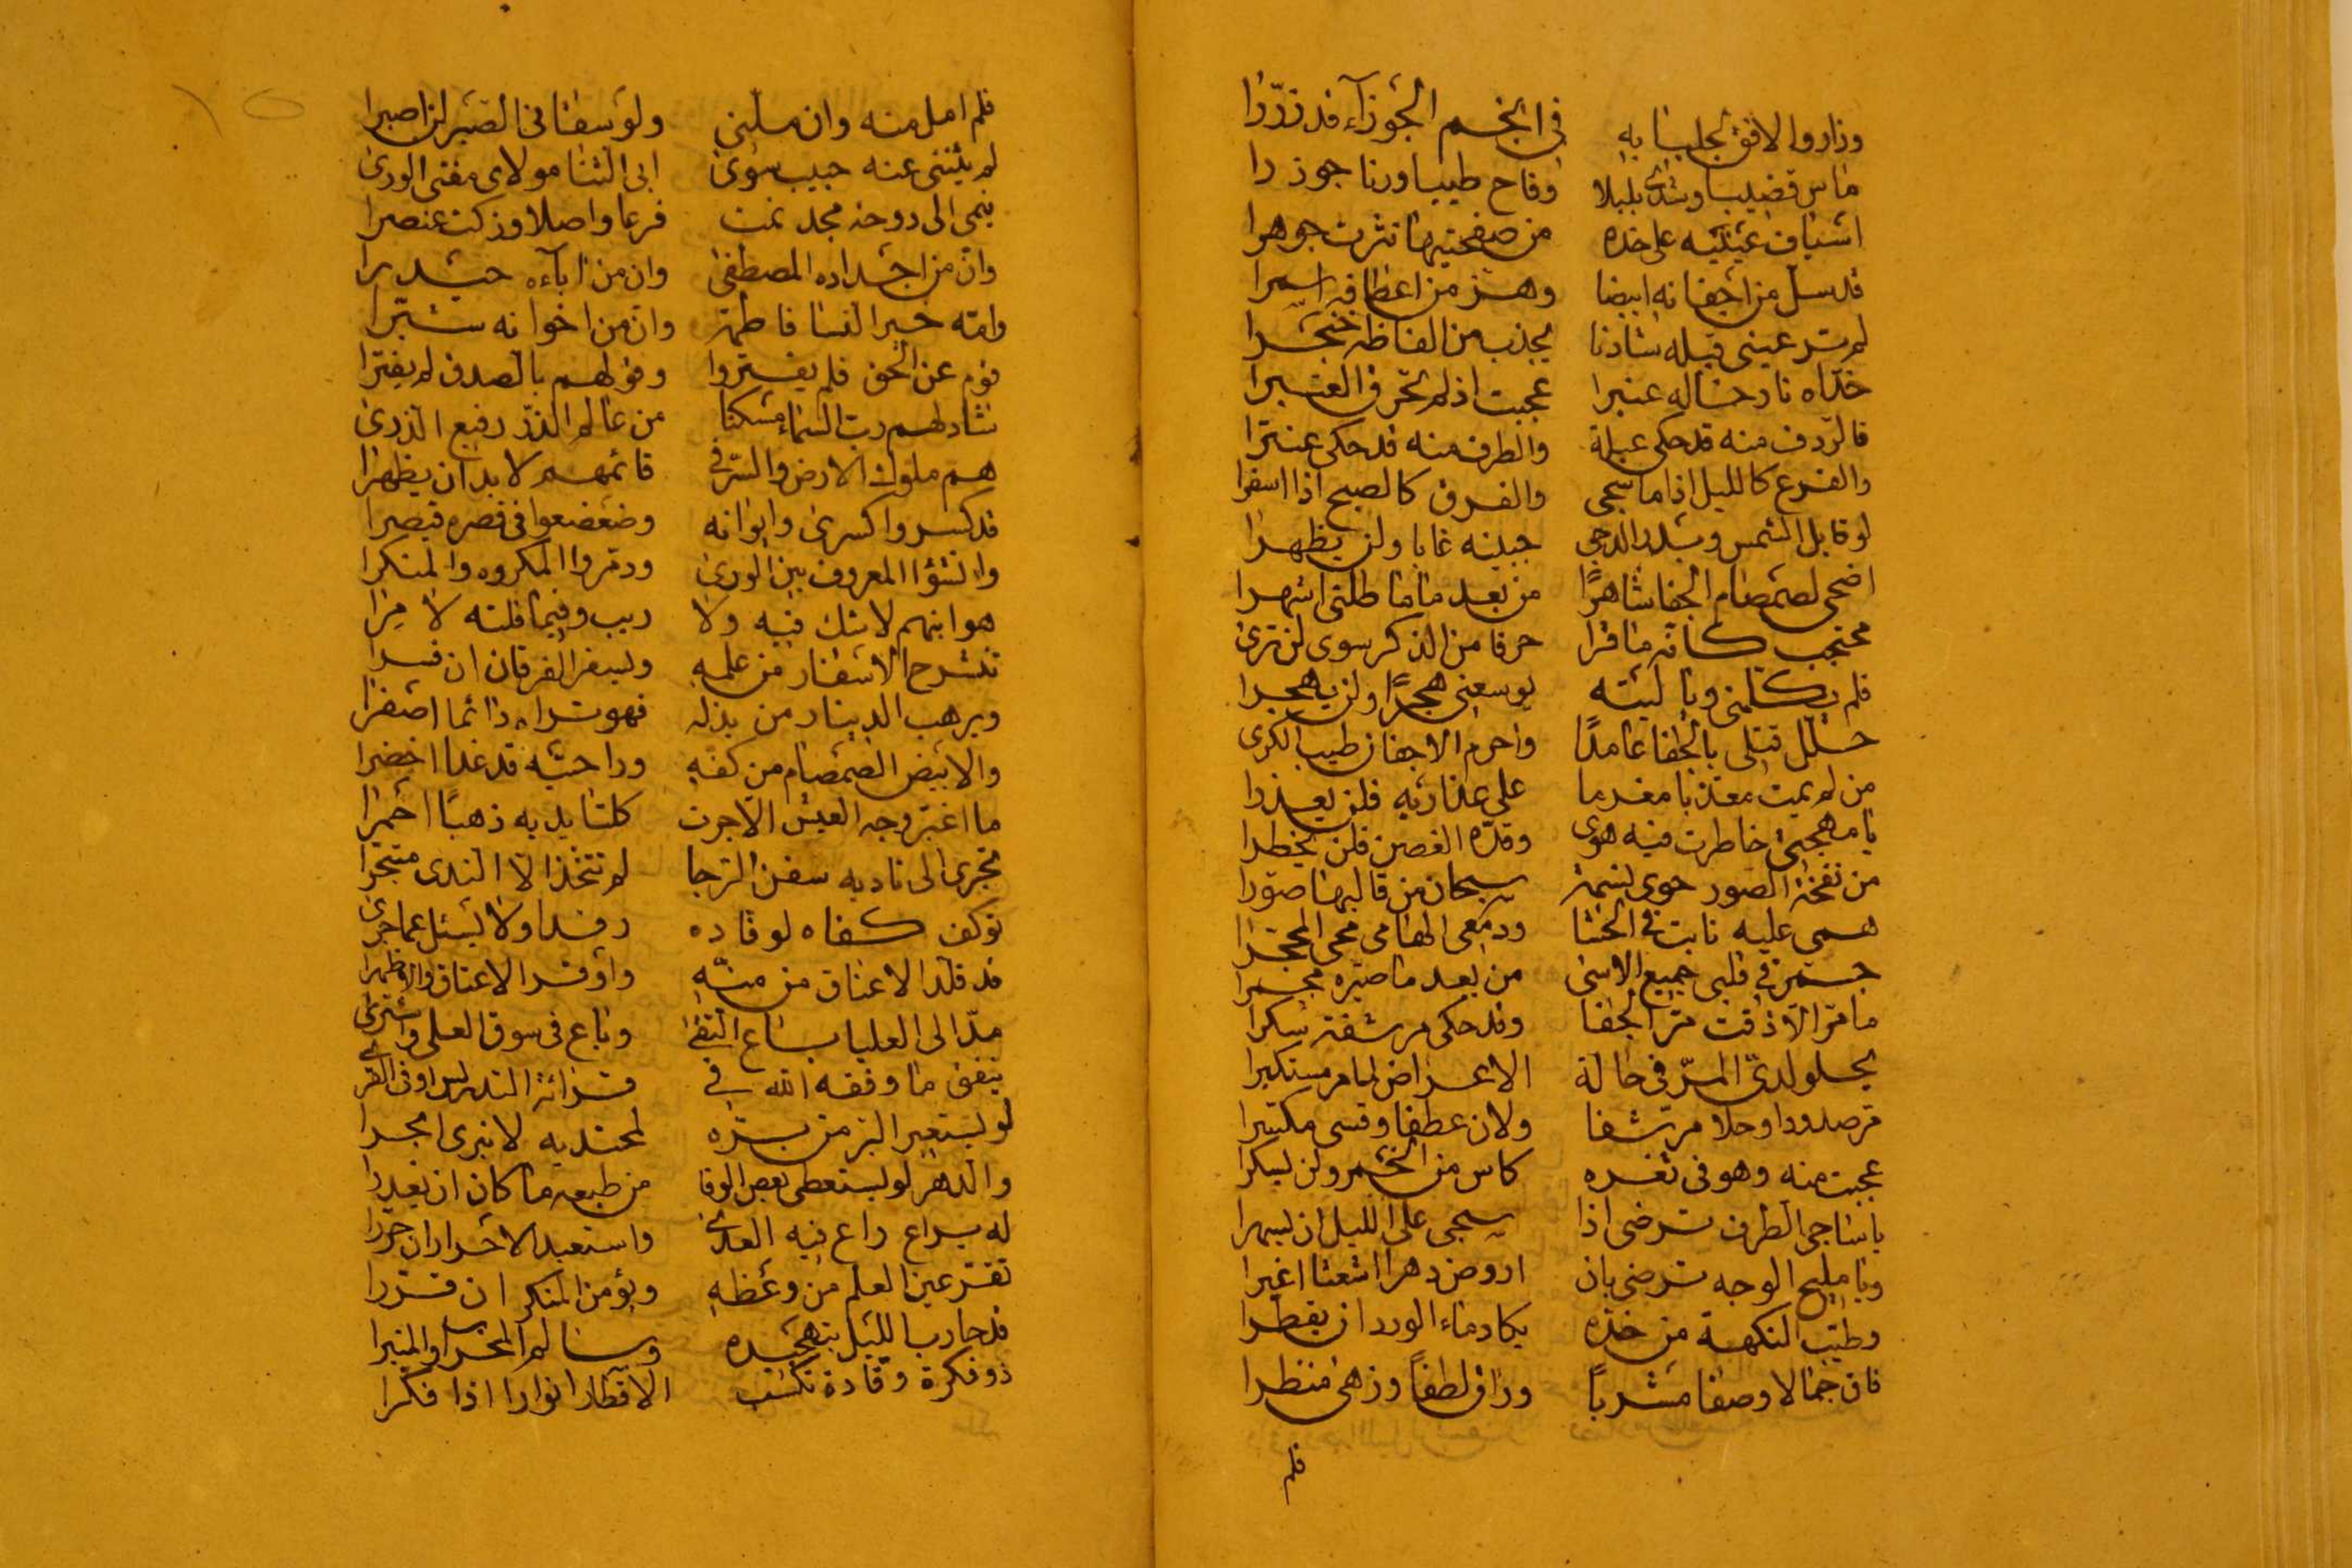 وزاروا الافق لجلبابه في انجم الجوزآء قد زررا
ماس قضيبا وشدى بلبلا وفاح طيبا ورنا جوذرا
اسياف عينيه على خده من صفحتيها نثرت جوهرا
قد سل من اجفانه ابيضا وهز من اعطافه اسمرا
لم تر عيني قبله شادنا يجذب من الفاظه خنجرا
خداه نار خاله عنبرا عجبت اذ لم تحرق العنبرا
فالردف منه قد حكى عبلة والطرف منه قد حكى عنترا
والفرع كالليل اذا ما سجى والفرق كالصبح اذا اسفرا
لو قابل الشمس وبدر الدجى جبينه غابا ولن يظهرا
اضحى لصمصام الجفا شاهرًا من بعد ما ماطلني اشهرا
محتجب كانه ما قرا حرفا من الذكر سوى لن ترى
فلم يكلمني ويا ليته يوسعني هجرًا ولن يهجرا
حلل قتلي بالجفا عامدًا واحرم الاجفان طيب الكرى
من لم يمت معذبا مغرما على عذاريه فلن يعذرا
يا مهجتي خاطرت فيه هوى وقده الغصين فلن يخطرا
من نفخة الصور حوى نسمة سبحان من قالبها صورا
همي عليه ثابت في الحشا ودمعي الهامي محى المحجرا
جمر في قلبي جميع الاسى من بعد ما صيره مجمرا
ما مر الا ذقت مر الجفا وقد حكى مرشفه سكرا
يحلو لدي المر في حالة الاعراض لما مر مستكبرا
مر صدودا وحلا مرشفا ولان عطفا وقسى مكسرا
عجبت منه وهو في ثغره كاس من الخمر ولن يسكرا
يا ساجي الطرف ترضى اذا سجى علي الليل ان اسهرا
ويا مليح الوجه ترضى بان اروض دهرا اشعثا اغبرا
وطيب النكهة من خده يكاد ماء الورد ان يقطرا
فاق جمالا وصفا مشربًا وراق لطفًا وزهى منظرا
فلم
١٥
فلم امل منه وان ملني ولو سفا في الصبر لن اصبرا
لم يثنني عنه حبيب سوى ابي الثنا مولاي مفتي الورى
ينمى الى دوحة مجد نمت فرعا واصلا وزكت عنصرا
وان من اجداده المصطفى وان من آبآءه حيدرا
وامه خير النسا فاطمة وان من اخوانه شبرا
قوم عن الحق فلم يفتروا وقولهم بالصدق لم يفترا
شاد لهم رب السماء مسكنا من عالم الذر رفيع الذرى
هم ملوك الارض والسر في قائمهم لابد ان يظهرا
قد كسروا كسرى وايوانه وضعضعوا في قصره قيصرا
وانشؤا المعروف بين الورى ودمروا المكروه والمنكرا
هو ابنهم لا شك فيه ولا ريب وفيما قلته لا مرا
تنشرح الاسفار من علمه ويسفر الفرقان ان فسرا
ويرهب الدينار من بذله فهو تراه دائما اصفرا
والابيض الصمصام من كفه وراحتيه قد غدا اخضرا
ما اغبر وجه العيش الا جرت كلتا يديه ذهبًا احمرا
تجرى الى ناديه سفن الرجا لم تتخذ الا الندى متجرا
توكف كفاه لوفاده رفدا ولا يسئل عما جرى
قد قلد الاعناق من منّه واوقر الاعناق والاظهرا
مد الى العليا بباع التقى وباع في سوق العلى واشترى
ينفق ما وفقه الله في قرائة التدريس او في القرى
لو يستعير البر من بره لمحتديه لانبرى ابحرا
والدهر لو يستعطي بعض الوفا من طبعه ما كان ان يغدرا
له يراع راع فيه العدى واستعبد الاحرار ان حررا
تقتر عين العلم من وعظه ويؤمن المنكر ان قررا
قد حارب الليل بتهجيده وسالم المحراب والمنبرا
ذو فكرة وقادة تكسب الاقطار انوارا اذا فكرا